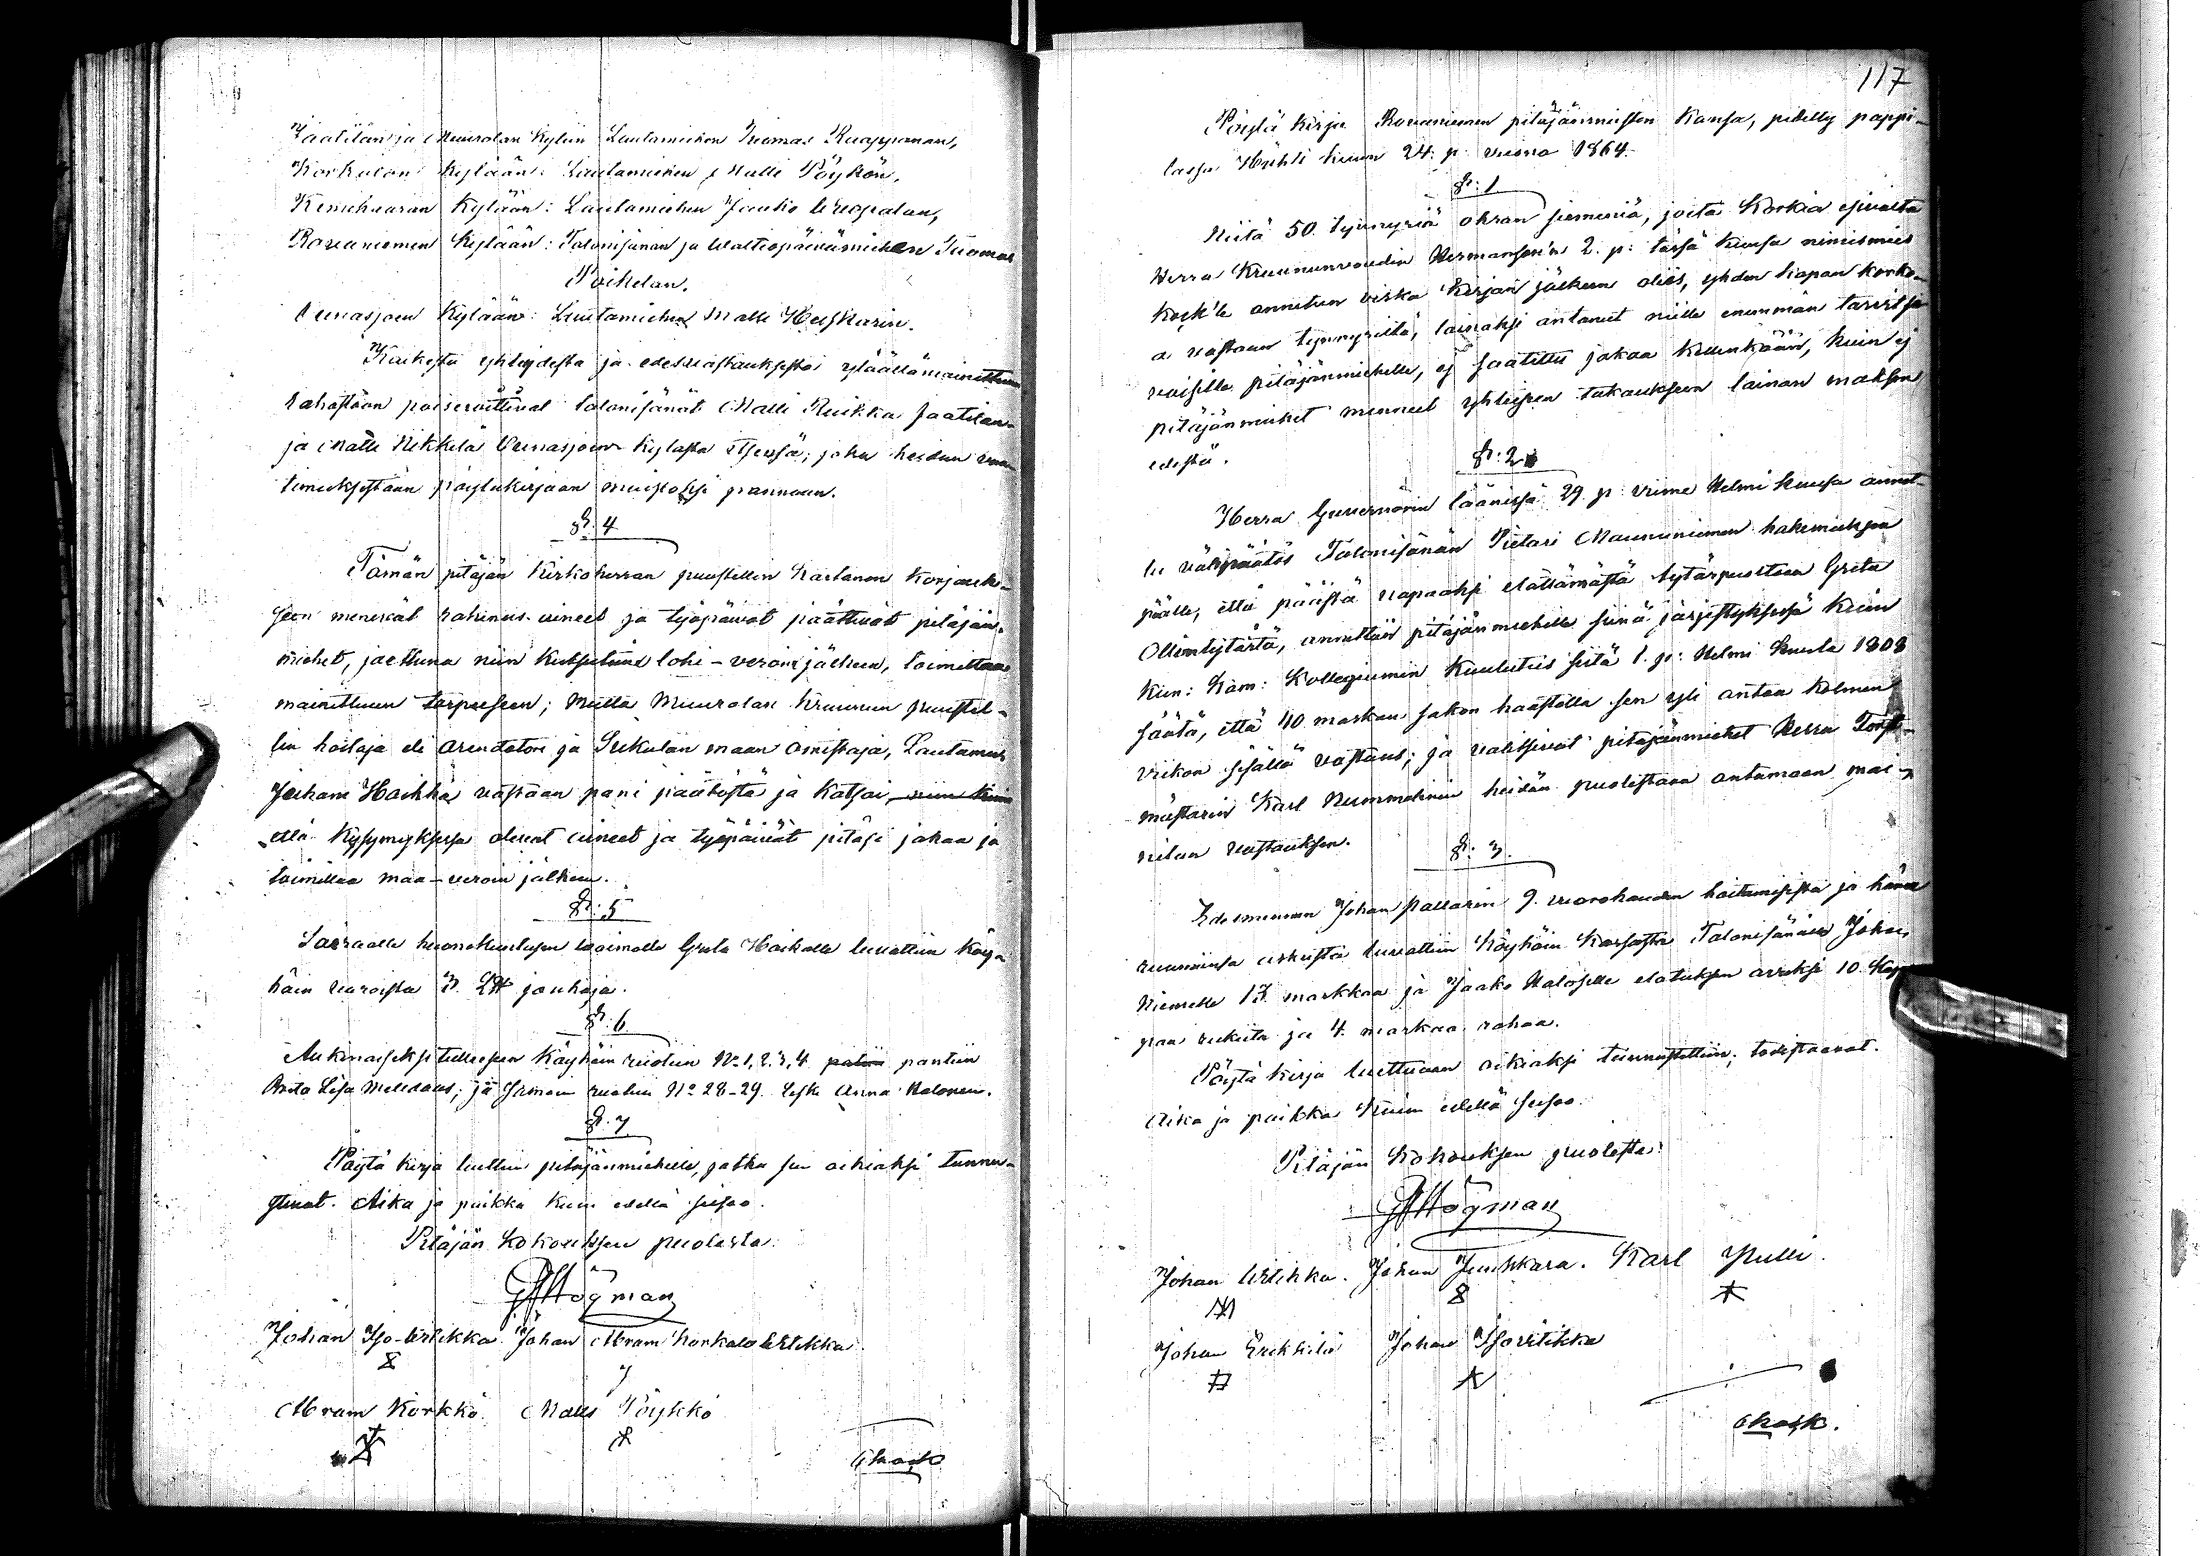 Jaatilan ja Muurolan Kyliin Lautamiehen Tuomas Ruappanan,
Korkalon Kylään: Lautamiehen Matti Pöykön,
Kemihaaran Kylään: Lautamiehen Jaako
Rovaniemen Kylään: Talonisänän ja Waltiopäivämiehen Tuomas
Poikelan.
Ounasjoen Kylään: Lautamiehen Matti
Kaikesta yhteydestä ja edesvastauksesta ylläällämainittuun
rahastoon poiseroittivat talonisänät Matti Ruikka Jaatilan-
ja Matti Nikkilä Ounasjoen Kylästä itsensä; joka heidän vaa-
timuksestaan pöytäkirjaan muistoksi pannaan.
§: 4
Tämän pitäjän Kirkoherran puustellin Kartanon Korjauk-
seen menevät rakinus-aineet ja työpäivät päättivät pitäjän-
miehet, jaettuna niin kutsutuin lohi-veroin jälkeen, toimittaa
mainittuun tarpeeseen; Mutta Muurolan Kruunun puustel-
lin hoitaja eli arendatori ja Sukulan maan omistaja, Lautamies
Juhani Hoikka vastaan pani päätöstä ja Katsoi, niin kuin
että Kysymyksessä olevat aineet ja työpäivät pitäisi jakaa ja
toimittaa maa-veroin jälkeen.
§: 5
Sairaalle huonekuulusen vaimolle Greta Hoikalle luvattiin Köy-
häin varoista 3. L℔ jauhoja.
§: 6.
Aukinaiseksi tulleesen Köyhäin ruotiin No 1, 2, 3, 4 pantiin
Brita Lisa Melldaus; ja samoin ruotiin No 28-29. Leski Anna Halonen.
§. 7.
Pöytä Kirja luettiin pitäjänmiehille, jotka sen oikiaksi tunnu-
stivat. Aika ja paikka kuin edellä seisoo.
Pitäjän Kokouksen puolesta:
Högman
Johan Iso-Urtikka. Johan Abram Korkalo Urtikka.
Abram Korkko. Matts Pöykkö
117
Pöytä Kirja Rovaniemen pitäjänmiesten kansa, pidetty pappi-
lassa Huhti kuun 24. p. vuona 1864.
§: 1
Niitä 50. tynnyriä ohran siemeniä, joita Korkia esivalta
Herra Kruununvoudin Hermanson'in 2. p: tässä kuusa nimismies
annetun virka Kirjan jälkeen olisi, yhden kapan korko-
a vastaan tynnyriltä, lainaksi antanut niille enimmän tarvitse-
vaisille pitäjänmiehille, ej saatettu jakaa kellenkään, kuin ej
pitäjänmiehet menneet yhteisen takaukseen lainan maksun
edestä.
§: 2.
Herra Guvernörin läänissä 29. p: viime Helmi kuusa annet-
tu välipäätös Talonisänän Pietari Maununiemen hakemuksen
päälle, että päästä vapaaksi elättämästä tytärpuoltaan Greta
Ollintytärtä, annettiin pitäjänmiehille siinä järjestyksessä kuin
Kun: Kam: Kollegiumin Kuulutus siitä 1. p: Helmi kuulta 1808
säätä, että 40. markan sakon haastolla sen yli antaa kolmen
viikon sisällä vastaus; ja valitsivat pitäjänmiehet Herra Forst-
mästarin Karl Nummelinin heidän puolestaan antamaan mai-
nitun vastauksen.
§: 3.
Edesmennen Johan Pallarin 9. vuorokauden hoitamisesta ja hänen
ruumiinsa arkusta luvattiin Köyhäin Kassasta Talonisänälle Johan
Niemelle 13. markkaa ja Jaako Haloselle elatuksen avuksi 10. Kap-
paa rukiita ja 4. markaa rahaa.
Pöytä Kirja luettuaan oikiaksi tunnustettiin; todistaavat.
Aika ja paikka kuin edellä seisoo.
Pitäjän Kokouksen puolesta:
Högman
Johan Urtikka. Johan Juukkara. Karl Pulli.
Johan Erikkilä Johan Iso Urtikka